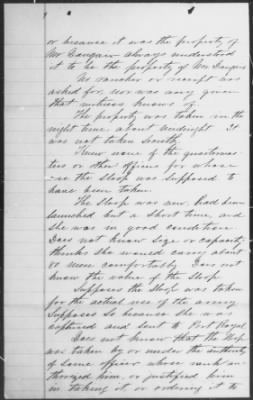 or because it was the property of
Mr Dangain always understood
it to be the property of Mrs Dangain
No voucher or receipt was
asked for, nor was any given
that witness knows of.
The property was taken in the
night time about midnight It
was not taken secretly
Knew none of the quartermas
ters or other officers for whose
use the Sloop was supposed to
have been taken.
The Sloop was new, had been
launched but a short time, and
she was in good condition
Does not know size or capacity,
thinks she would carry about
or more comfortably. Does not
know the value of the Sloop
Supposes the Sloop was taken
for the actual use of the army
Supposes so because she was
captured and sent to Port Royal
Does not know that the Sloop
was taken by or under the authority
of some officer whose rank au-
thorized him, or justified him
in taking it or ordering it to